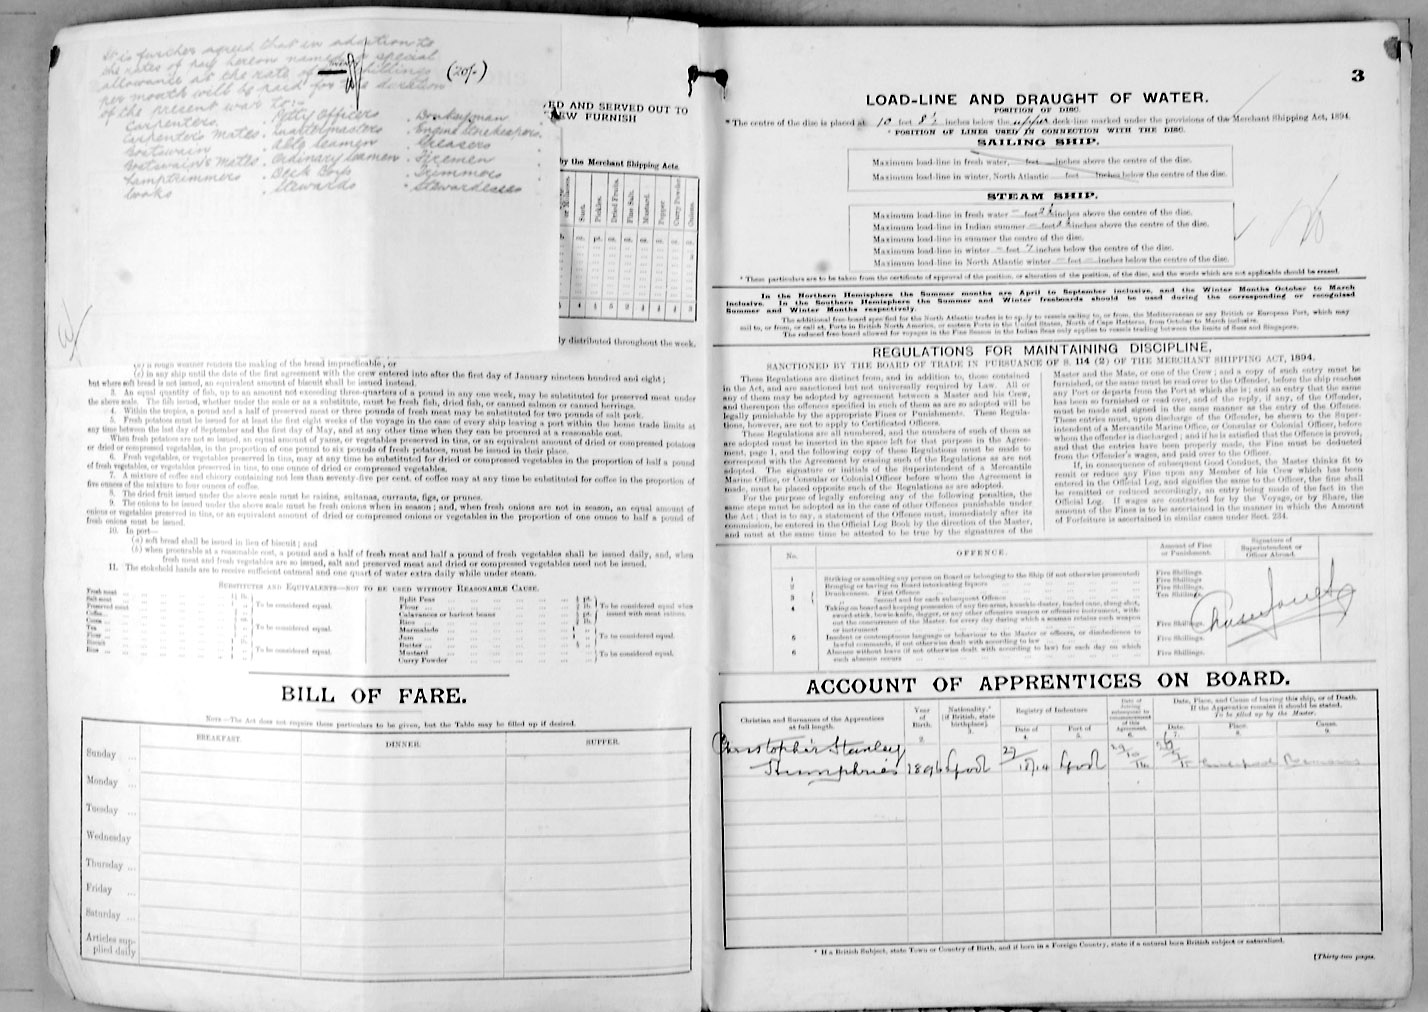 It is further agreed that in addition to
the rates of pay hereon named a special
allowance at the rate of shillings
per month will be paid for the duration
of the present war to:-
(20/-)
Carpenters. Petty Officers. Donkeyman
Carpenter's Mates. Quartermasters. Engine Storekeepers.
Boatswain. Able Seamen. Greasers
Boatswain's Mates. Ordinary Seamen. Firemen
Lamptrimmers. Deck Boys. Trimmers
Cooks. Stewards. Stewardesses
ED AND SERVED OUT TO
EW FURNISH
by the Merchant Shipping Acts.
Suet. Pickles. Dried Fruits. Fine Salt. Mustard. Pepper. Curry Powder. Onions.
oz. pt. oz. oz. oz. oz. oz. oz.
ly distributed throughout the week.
(b) if rough weather renders the making of the bread impracticable, or
(c) in any ship until the date of the first agreement with the crew entered into after the first day of January nineteen hundred and eight;
but where soft bread is not issued, an equivalent amount of biscuit shall be issued instead.
3. An equal quantity of fish, up to an amount not exceeding three-quarters of a pound in any one week, may be substituted for preserved meat under
the above scale. The fish issued, whether under the scale or as a substitute, must be fresh fish, dried fish, or canned salmon or canned herrings.
4. Within the tropics, a pound and a half of preserved meat or three pounds of fresh meat may be substituted for two pounds of salt pork.
5. Fresh potatoes must be issued for at least the first eight weeks of the voyage in the case of every ship leaving a port within the home trade limits at
any time between the last day of September and the first day of May, and at any other time when they can be procured at a reasonable cost.
When fresh potatoes are not so issued, an equal amount of yams, or vegetables preserved in tins, or an equivalent amount of dried or compressed potatoes
or dried or compressed vegetables, in the proportion of one pound to six pounds of fresh potatoes, must be issued in their place.
6. Fresh vegetables, or vegetables preserved in tins, may at any time be substituted for dried or compressed vegetables in the proportion of half a pound
of fresh vegetables, or vegetables preserved in tins, to one ounce of dried or compressed vegetables.
7. A mixture of coffee and chicory containing not less than seventy-five per cent. of coffee may at any time be substituted for coffee in the proportion of
five ounces of the mixture to four ounces of coffee.
8. The dried fruit issued under the above scale must be raisins, sultanas, currants, figs, or prunes.
9. The onions to be issued under the above scale must be fresh onions when in season; and, when fresh onions are not in season, an equal amount of
onions or vegetables preserved in tins, or an equivalent amount of dried or compressed onions or vegetables in the proportion of one ounce to half a pound of
fresh onions must be issued.
10. In port—
(a) soft bread shall be issued in lieu of biscuit; and
(b) when procurable at a reasonable cost, a pound and a half of fresh meat and half a pound of fresh vegetables shall be issued daily, and, when
fresh meat and fresh vegetables are so issued, salt and preserved meat and dried or compressed vegetables need not be issued.
11. The stokehold hands are to receive sufficient oatmeal and one quart of water extra daily while under steam.
SUBSTITUTES AND EQUIVALENTS—NOT TO BE USED WITHOUT REASONABLE CAUSE.
Fresh meat
Salt meat
Preserved meat
To be considered equal.
Coffee
Cocoa
Tea
To be considered equal.
Flour
Biscuit
Rice
To be considered equal.
Split Peas
Flour
Calavances or haricot beans
Rice
To be considered equal when issued with meat rations.
Marmalade
Jam
Butter
To be considered equal.
Mustard
Curry Powder
To be considered equal.
BILL OF FARE.
NOTE—The Act does not require these particulars to be given, but the Table may be filled up if desired.
BREAKFAST. DINNER. SUPPER.
Sunday ...
Monday ...
Tuesday ...
Wednesday
Thursday ...
Friday ...
Saturday ...
Articles supplied daily
3
LOAD-LINE AND DRAUGHT OF WATER.
POSITION OF DISC.
*The centre of the disc is placed at 10 feet 8½ inches below the upper deck-line marked under the provisions of the Merchant Shipping Act, 1894.
* POSITION OF LINES USED IN CONNECTION WITH THE DISC.
SAILING SHIP.
Maximum load-line in fresh water, feet inches above the centre of the disc.
Maximum load-line in winter, North Atlantic feet inches below the centre of the disc.
STEAM SHIP.
Maximum load-line in fresh water — feet inches above the centre of the disc.
Maximum load-line in Indian summer — feet inches above the centre of the disc.
Maximum load-line in summer the centre of the disc.
Maximum load-line in winter — feet 7 inches below the centre of the disc.
Maximum load-line in North Atlantic winter — feet — inches below the centre of the disc.
* These particulars are to be taken from the certificate of approval of the position, or alteration of the position, of the disc, and the words which are not applicable should be erased.
In the Northern Hemisphere the Summer months are April to September inclusive, and the Winter Months October to March
inclusive. In the Southern Hemisphere the Summer and Winter freeboards should be used during the corresponding or recognised
Summer and Winter Months respectively.
The additional free-board specified for the North Atlantic trades is to apply to vessels sailing to, or from, the Mediterranean or any British or European Port, which may
sail to, or from, or call at, Ports in British North America, or eastern Ports in the United States, North of Cape Hatteras, from October to March inclusive.
The reduced free-board allowed for voyages in the Fine Season in the Indian Seas only applies to vessels trading between the limits of Suez and Singapore.
REGULATIONS FOR MAINTAINING DISCIPLINE,
SANCTIONED BY THE BOARD OF TRADE IN PURSUANCE OF S. 114 (2) OF THE MERCHANT SHIPPING ACT, 1894.
These Regulations are distinct from, and in addition to, those contained
in the Act, and are sanctioned but not universally required by Law. All or
any of them may be adopted by agreement between a Master and his Crew,
and thereupon the offences specified in such of them as are so adopted will be
legally punishable by the appropriate Fines or Punishments. These Regulations,
however, are not to apply to Certificated Officers.
These Regulations are all numbered, and the numbers of such of them as
are adopted must be inserted in the space left for that purpose in the Agreement,
page 1, and the following copy of these Regulations must be made to
correspond with the Agreement by erasing such of the Regulations as are not
adopted. The signature or initials of the Superintendent of a Mercantile
Marine Office, or Consular or Colonial Officer before whom the Agreement is
made, must be placed opposite such of the Regulations as are adopted.
For the purpose of legally enforcing any of the following penalties, the
same steps must be adopted as in the case of other Offences punishable under
the Act; that is to say, a statement of the Offence must, immediately after its
commission, be entered in the Official Log Book by the direction of the Master,
and must at the same time be attested to be true by the signatures of the
Master and the Mate, or one of the Crew; and a copy of such entry must be
furnished, or the same must be read over to the Offender, before the ship reaches
any Port or departs from the Port at which she is; and an entry that the same
has been so furnished or read over, and of the reply, if any, of the Offender,
must be made and signed in the same manner as the entry of the Offence.
These entries must, upon discharge of the Offender, be shown to the Superintendent
of a Mercantile Marine Office, or Consular or Colonial Officer, before
whom the offender is discharged; and if he is satisfied that the Offence is proved,
and that the entries have been properly made, the Fine must be deducted
from the Offender's wages, and paid over to the Officer.
If, in consequence of subsequent Good Conduct, the Master thinks fit to
remit or reduce any Fine upon any Member of his Crew which has been
entered in the Official Log, and signifies the same to the Officer, the fine shall
be remitted or reduced accordingly, an entry being made of the fact in the
Official Log. If wages are contracted for by the Voyage, or by Share, the
amount of the Fines is to be ascertained in the manner in which the Amount
of Forfeiture is ascertained in similar cases under Sect. 234.
No. OFFENCE. Amount of Fine or Punishment. Signature of Superintendent or Officer Abroad.
1 Striking or assaulting any person on Board or belonging to the Ship (if not otherwise prosecuted) Five Shillings.
2 Bringing or having on Board intoxicating liquors Five Shillings.
3 Drunkenness. First Offence Five Shillings.
Second and for each subsequent Offence Ten Shillings.
4 Taking on board and keeping possession of any fire-arms, knuckle-duster, loaded cane, slung-shot,
sword-stick, bowie-knife, dagger, or any other offensive weapon or offensive instrument, without
the concurrence of the Master, for every day during which a seaman retains such weapon
or instrument Five Shillings.
5 Insolent or contemptuous language or behaviour to the Master or officers, or disobedience to
lawful commands, if not otherwise dealt with according to law Five Shillings.
6 Absence without leave (if not otherwise dealt with according to law) for each day on which
such absence occurs Five Shillings.
ACCOUNT OF APPRENTICES ON BOARD.
Christian and Surnames of the Apprentices at full length. 1.
Year of Birth. 2.
Nationality.* (if British, state birthplace). 3.
Registry of Indenture
Date of 4. Port of 5.
Date of joining subsequent to commencement of this Agreement. 6.
Date, Place, and Cause of leaving this ship, or of Death.
If the Apprentice remains it should be stated.
To be filled up by the Master.
Date. 7. Place. 8. Cause. 9.
Christopher Stanley
Humphries 1896 L'pool L'pool Remains
* If a British Subject, state Town or Country of Birth, and if born in a Foreign Country, state if a natural born British subject or naturalized.
[Thirty-two pages.